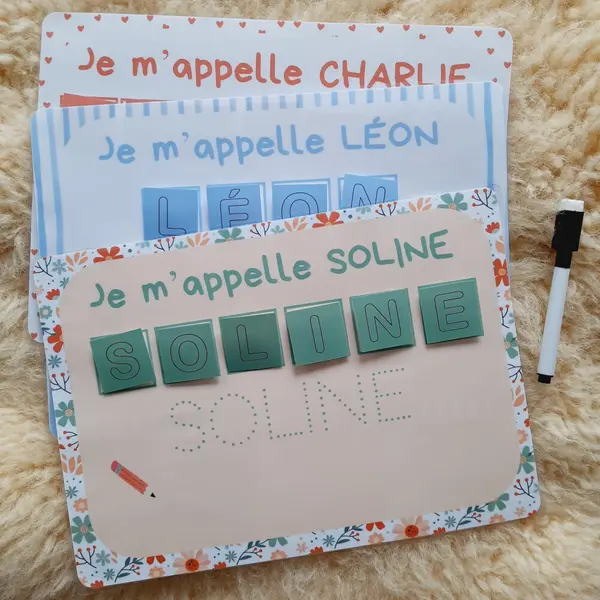 Je m'appelle CHARLIE
Je m'appelle LÉON
LÉON
Je m'appelle SOLINE
SOLINE
SOLINE